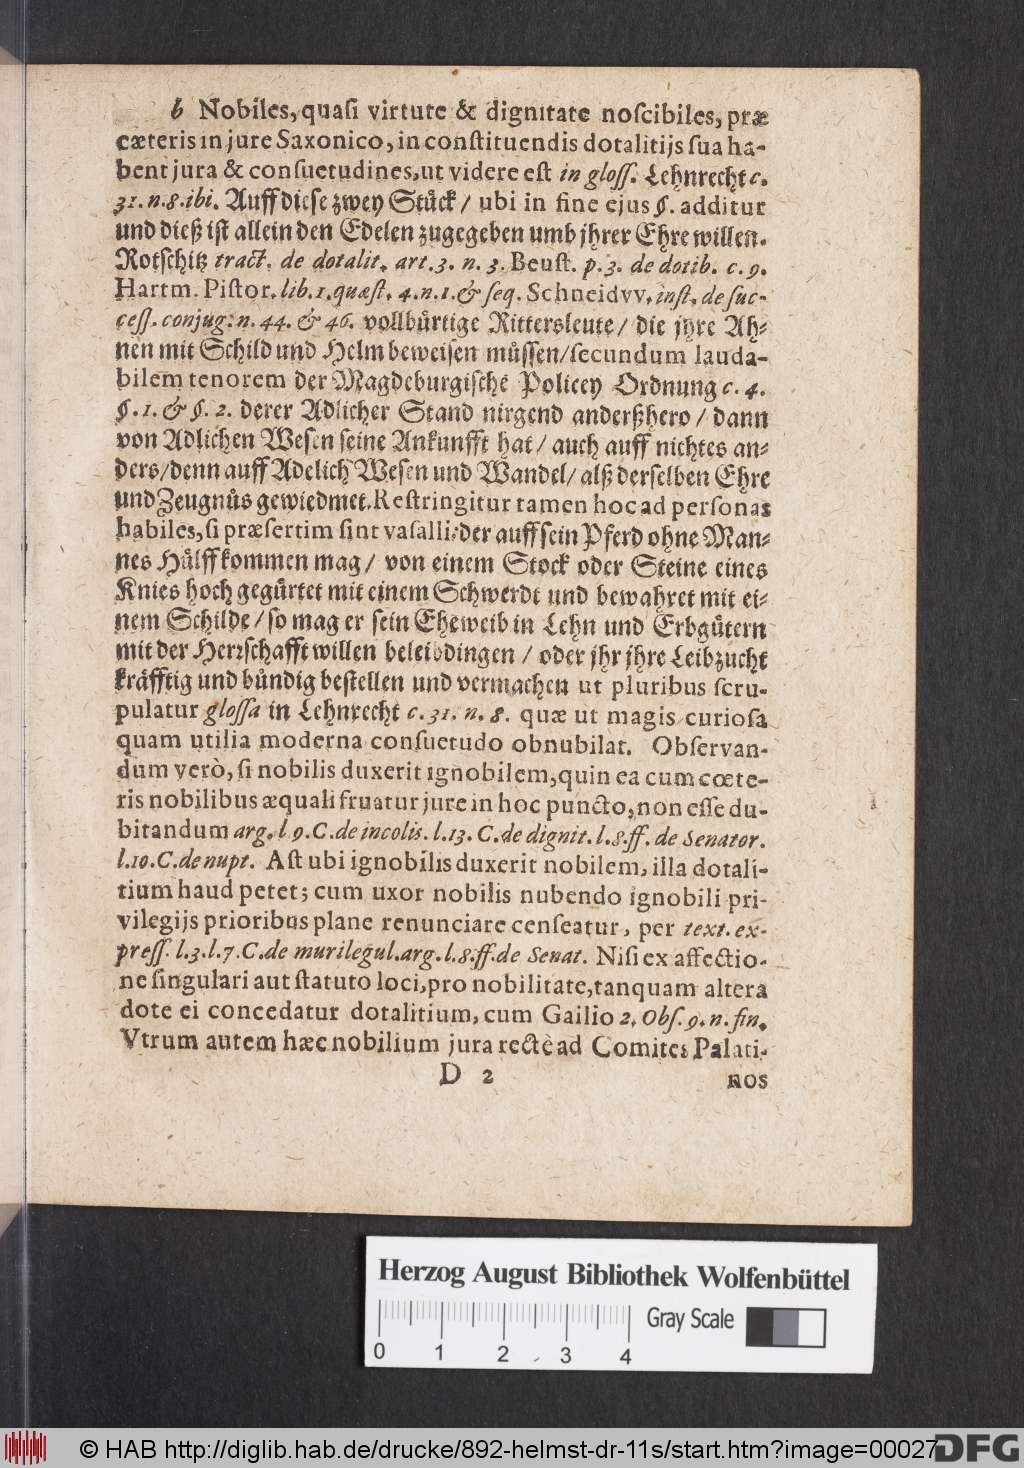 b Nobiles, quasi virtute & dignitate noscibiles, præ
cæteris in jure Saxonico, in constituendis dotalitijs sua ha-
bent jura & consuetudines, ut videre est in gloss. Lehnrecht c.
31. n. 8. ibi. Auff diese zwey Stück / ubi in fine ejus §. additur
und dieß ist allein den Edelen zugegeben umb jhrer Ehre willen.
Rotschitz tract. de dotalit. art. 3. n. 3. Beust. p. 3. de dotib. c. 9.
Hartm. Pistor. lib. 1. quæst. 4. n. 1. & seq. Schneidvv. inst. de suc-
cess. conjug: n. 44. & 46. vollbürtige Rittersleute / die jhre Ah-
nen mit Schild und Helm beweisen müssen / secundum lauda-
bilem tenorem der Magdeburgische Policey Ordnung c. 4.
§. 1. & §. 2. derer Adlicher Stand nirgend anderßhero / dann
von Adlichen Wesen seine Ankunfft hat / auch auff nichtes an-
ders / denn auff Adelich Wesen und Wandel / alß derselben Ehre
und Zeugnüs gewiedmet. Restringitur tamen hoc ad personas
habiles, si præsertim sint vasalli: der auff sein Pferd ohne Man-
nes Hülff kommen mag / von einem Stock oder Steine eines
Knies hoch gegürtet mit einem Schwerdt und bewahret mit ei-
nem Schilde / so mag er sein Eheweib in Lehn und Erbgütern
mit der Herrschafft willen beleibdingen / oder jhr jhre Leibzucht
kräfftig und bündig bestellen und vermachen ut pluribus scru-
pulatur glossa in Lehnrecht c. 31. n. 8. quæ ut magis curiosa
quam utilia moderna consuetudo obnubilat. Observan-
dum verò, si nobilis duxerit ignobilem, quin ea cum cœte-
ris nobilibus æquali fruatur jure in hoc puncto, non esse du-
bitandum arg. l 9. C. de incolis. l. 13. C. de dignit. l. 8. ff. de Senator.
l. 10. C. de nupt. Ast ubi ignobilis duxerit nobilem, illa dotali-
tium haud petet; cum uxor nobilis nubendo ignobili pri-
vilegijs prioribus plane renunciare censeatur, per text. ex-
press. l. 3. l. 7. C. de murilegul. arg. l. 8. ff. de Senat. Nisi ex affectio-
ne singulari aut statuto loci, pro nobilitate, tanquam altera
dote ei concedatur dotalitium, cum Gailio 2. Obs. 9. n. fin.
Vtrum autem hæc nobilium jura rectè ad Comites Palati-
D 2 nos
Herzog August Bibliothek Wolfenbüttel
Gray Scale
0 1 2 3 4
© HAB http://diglib.hab.de/drucke/892-helmst-dr-11s/start.htm?image=00027
DFG